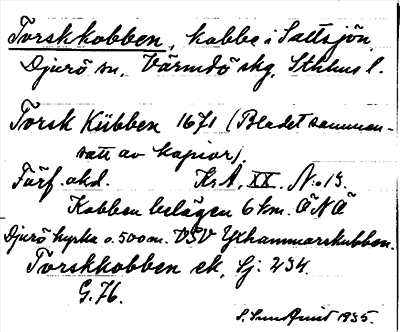 Torskkobben, kobbe i Saltsjön,
Djurö sn, Värmdö skg, Sthlms l.
Torsk Kübben 1671 (Bladet samman-
satt av kopior).
Förf. okd. KrA, XX. N:o 13.
Kobben belägen 6 km. ÖNÖ
Djurö kyrka o. 500 m. VSV Yxhammarskubben.
Torskkobben ek. bl. 234.
G. 76.
S. Sundquist 1935.